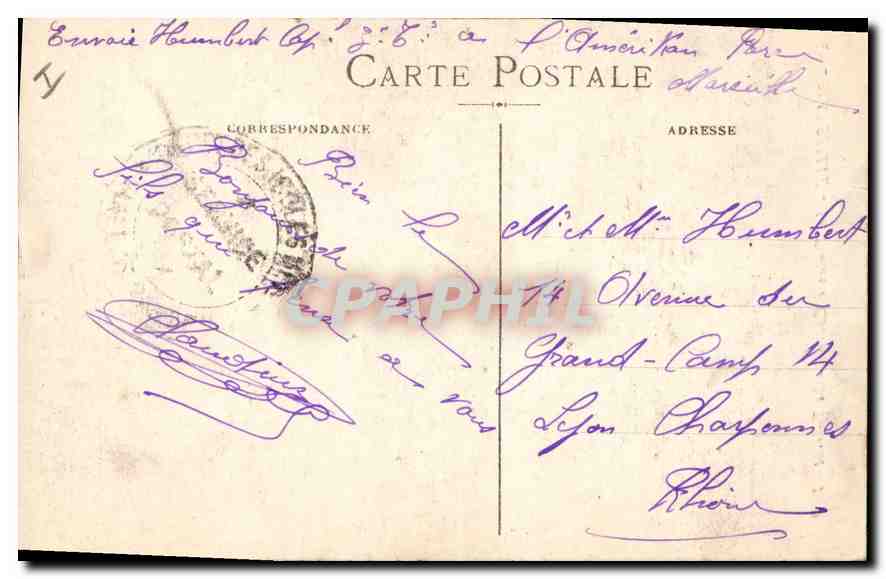 Envoie Humbert Cap¹ 9ᵉ Tˢ a l'Amérikan Parc
Marseille
CARTE POSTALE
CORRESPONDANCE
ADRESSE
Bien le
Bonjour de votre
fils qui pense a vous
Mr et Mme Humbert
14 Avenue du
Grand-Camp 14
Lyon Charpennes
Rhône
CPAPHIL